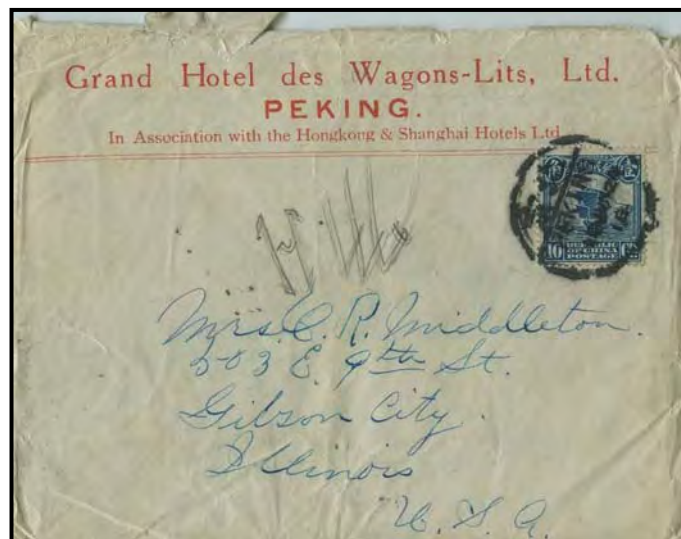 Grand Hotel des Wagons-Lits, Ltd.
PEKING.
In Association with the Hongkong & Shanghai Hotels Ltd
REPUBLIC
OF CHINA
POSTAGE
10
Mrs. C. R. Middleton.
503 E. 9th St.
Gibson City.
Illinois
U. S. A.